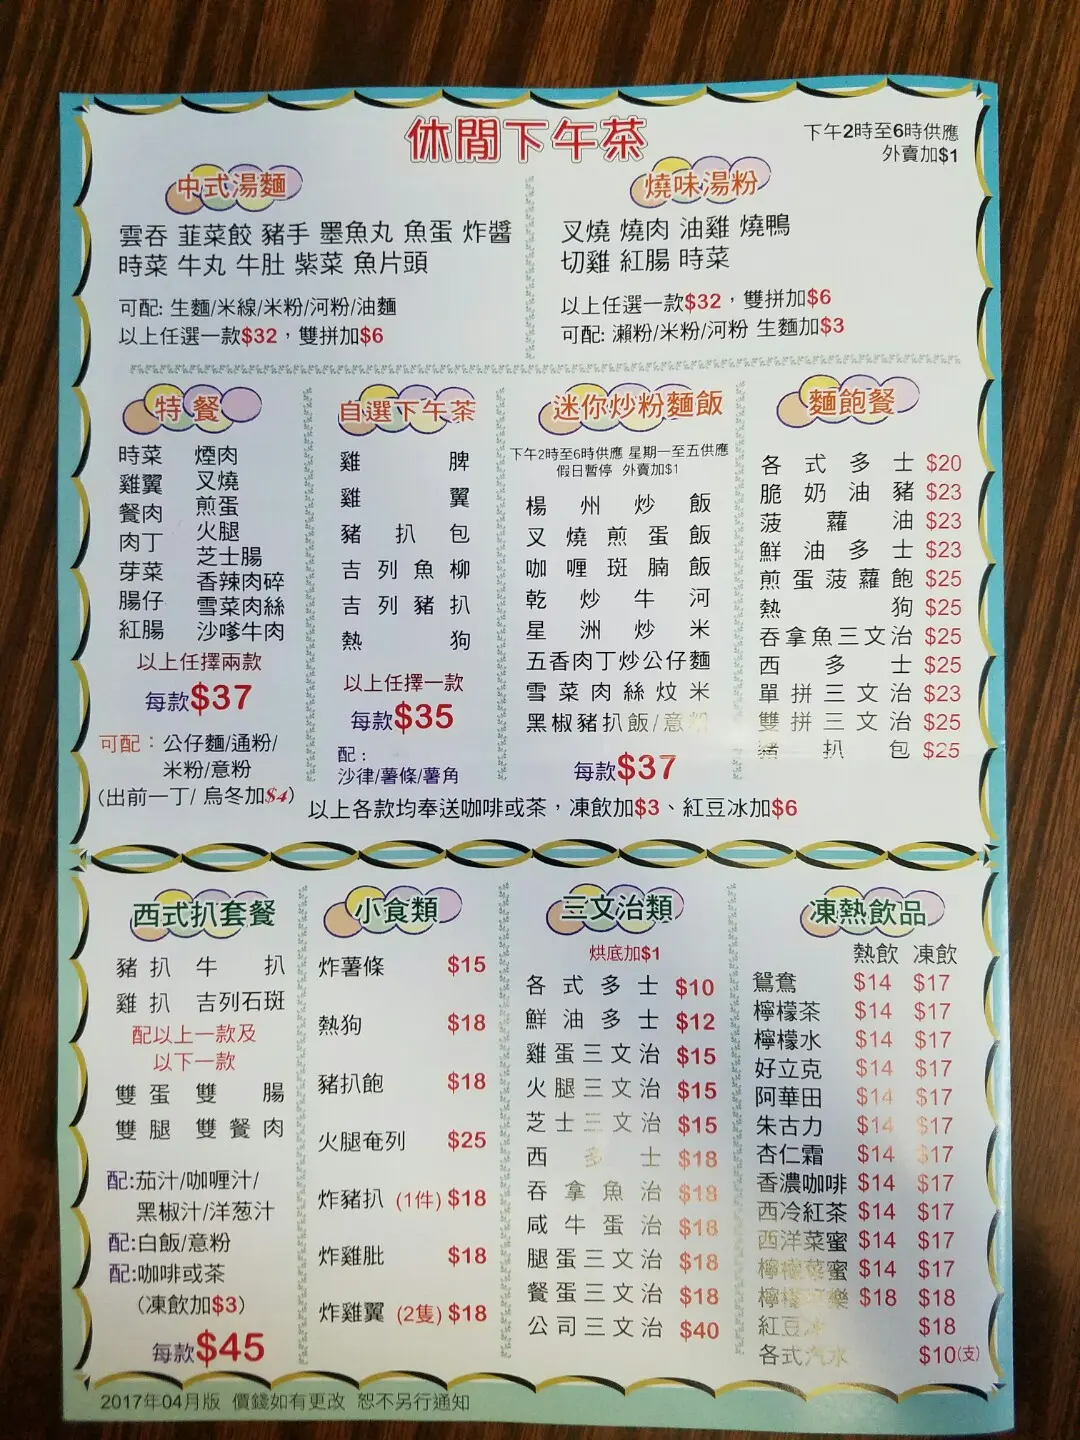 休閒下午茶
下午2時至6時供應
外賣加$1
中式湯麵
雲吞 韮菜餃 豬手 墨魚丸 魚蛋 炸醬
時菜 牛丸 牛肚 紫菜 魚片頭
可配: 生麵/米線/米粉/河粉/油麵
以上任選一款$32，雙拼加$6
燒味湯粉
叉燒 燒肉 油雞 燒鴨
切雞 紅腸 時菜
以上任選一款$32，雙拼加$6
可配: 瀨粉/米粉/河粉 生麵加$3
特餐
時菜 煙肉
雞翼 叉燒
餐肉 煎蛋
肉丁 火腿
芽菜 芝士腸
腸仔 香辣肉碎
紅腸 雪菜肉絲
沙嗲牛肉
以上任擇兩款
每款$37
可配：公仔麵/通粉/
米粉/意粉
(出前一丁/ 烏冬加$4)
自選下午茶
雞脾
雞翼
豬扒包
吉列魚柳
吉列豬扒
熱狗
以上任擇一款
每款$35
配：
沙律/薯條/薯角
迷你炒粉麵飯
下午2時至6時供應 星期一至五供應
假日暫停 外賣加$1
楊州炒飯
叉燒煎蛋飯
咖喱斑腩飯
乾炒牛河
星洲炒米
五香肉丁炒公仔麵
雪菜肉絲炆米
黑椒豬扒飯/意粉
每款$37
麵飽餐
各式多士 $20
脆奶油豬 $23
菠蘿油 $23
鮮油多士 $23
煎蛋菠蘿飽 $25
熱狗 $25
吞拿魚三文治 $25
西多士 $25
單拼三文治 $23
雙拼三文治 $25
豬扒包 $25
以上各款均奉送咖啡或茶，凍飲加$3、紅豆冰加$6
西式扒套餐
豬扒 牛扒
雞扒 吉列石斑
配以上一款及
以下一款
雙蛋雙腸
雙腿 雙餐肉
配:茄汁/咖喱汁/
黑椒汁/洋葱汁
配:白飯/意粉
配:咖啡或茶
(凍飲加$3)
每款$45
小食類
炸薯條 $15
熱狗 $18
豬扒飽 $18
火腿奄列 $25
炸豬扒 (1件) $18
炸雞肶 $18
炸雞翼 (2隻) $18
三文治類
烘底加$1
各式多士 $10
鮮油多士 $12
雞蛋三文治 $15
火腿三文治 $15
芝士三文治 $15
西多士 $18
吞拿魚治 $18
咸牛蛋治 $18
腿蛋三文治 $18
餐蛋三文治 $18
公司三文治 $40
凍熱飲品
熱飲 凍飲
鴛鴦 $14 $17
檸檬茶 $14 $17
檸檬水 $14 $17
好立克 $14 $17
阿華田 $14 $17
朱古力 $14 $17
杏仁霜 $14 $17
香濃咖啡 $14 $17
西冷紅茶 $14 $17
西洋菜蜜 $14 $17
檸檬菜蜜 $14 $17
檸檬可樂 $18 $18
紅豆冰 $18
各式汽水 $10(支)
2017年04月版 價錢如有更改 恕不另行通知